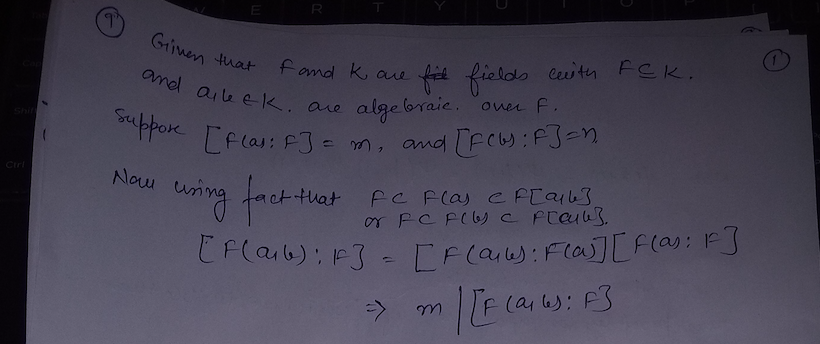 9)
①
Given that F and K are fields with F ⊆ K.
and a,b ∈ K. are algebraic. over F.
Suppose [F(a): F] = m, and [F(b): F] = n
Now using fact that F ⊂ F(a) ⊂ F[a,b]
or F ⊂ F(b) ⊂ F[a,b].
[F(a,b): F] = [F(a,b): F(a)][F(a): F]
⇒ m | [F(a,b): F]